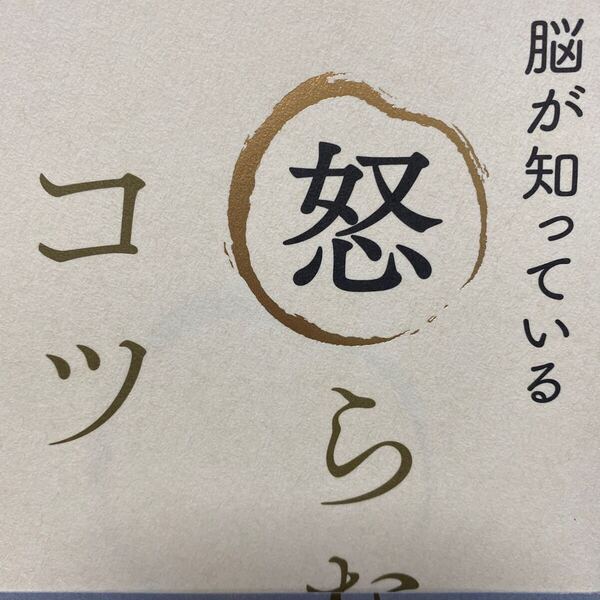 脳が知っている
怒ら
コツ